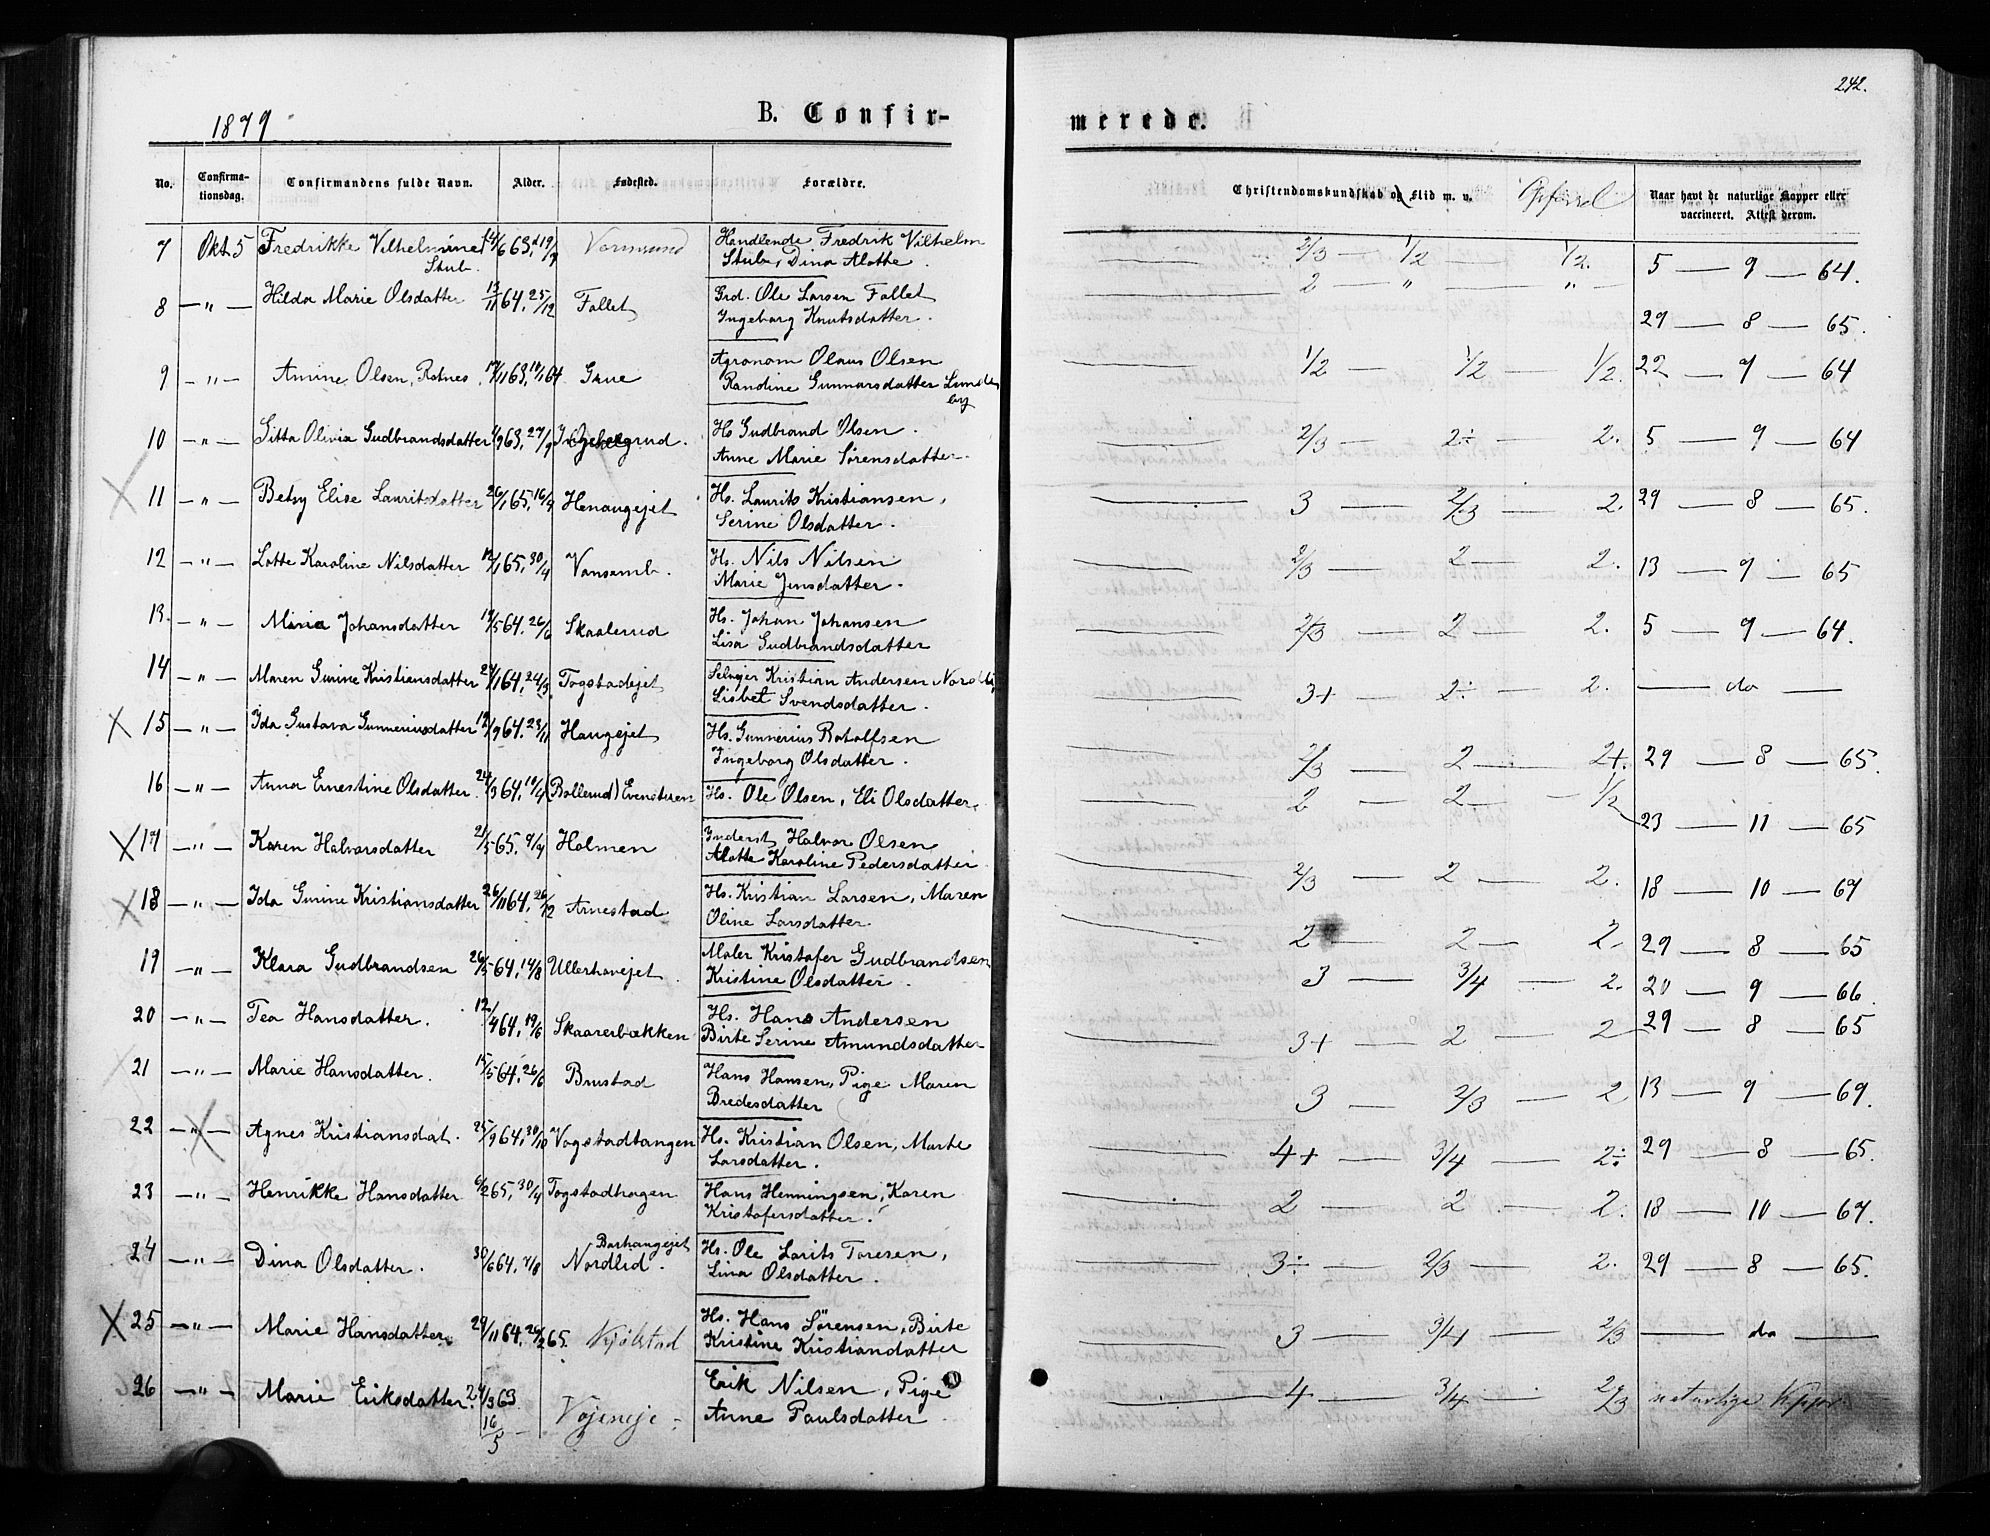 242.
1879
B. Confir-
merede.
No.
Confirma-
tionsdag.
Confirmandens fulde Navn.
Alder.
Fødested.
Forældre.
Christendomskundskab og Flid m. v.
Opførsel
Naar havt de naturlige Kopper eller
vaccineret. Attest derom.
7 Okt. 5 Fredrikke Vilhelmine Handlende Fredrik Vilhelm
Stub. Stub, Dina Alotte. 2/3 — 1/2 — 1/2. 5 — 9 — 64.
8 — " — Hilda Marie Olsdatter 13/11 64. 25/12 Fallet Grd. Ole Larsen Fallet 2 — " — " —
Ingeborg Knutsdatter. 29 — 8 — 65.
9 — " — Amine Olsen, Rotnes Grue Agronom Olaus Olsen 1/2 — 1/2 — 1/2. 22 — 9 — 64
Randine Gunnarsdatter
10 — " — Sitta Olivia Gudbrandsdatter 63, 27/9 H Gudbrand Olsen. 2/3 — 2÷ — 2. 5 — 9 — 64
Anne Marie Sørensdatter.
11 — " — Betsy Elise Lauritsdatter 26/1 65, Hs. Laurits Kristiansen, 3 — 2/3 — 2. 29 — 8 — 65.
Serine Olsdatter.
12 — " — Lotte Karoline Nilsdatter 12/1 65, 30/4 Vonsemb. Hs. Nils Nilsen 2/3 — 2 — 2. 13 — 9 — 65
Marie Jensdatter.
13. — " — Maria Johansdatter 19/5 64. 26/6 Skaalerud Hs. Johan Johansen 2/3 — 2 — 2. 5 — 9 — 64.
Lisa Gudbrandsdatter
14 — " — Maren Gurine Kristiansdatter 64, 24/3 Togstadejet Selvejer Kristian Andersen 3+ — 2÷ — 2. — do —
Lisbet Svendsdatter.
15 — " — Ida Gustava Gunneriusdatter 64. 23/11 Haugejet Hs. Gunnerius Rotolfsen 2/3 — 2 — 2+. 29 — 8 — 65.
Ingeborg Olsdatter.
16 — " — Anna Ernestine Olsdatter. 24/3 64, (Bollerud) Evensteren Hs. Ole Olsen, Eli Olsdatter. 2 — 2 — 1/2 23 — 11 — 65
17 — " — Karen Halvorsdatter 21/5 65. Holmen Inderst Halvor Olsen
Alotte Karoline Pedersdatter 2/3 — 2 — 2. 18 — 10 — 67
18 — " — Ida Gurine Kristiansdatter 26/11 64, 26/12 Arnestad Hs. Kristian Larsen, Maren
Oline Larsdatter. 2 — 2 — 2. 29 — 8 — 65
19 — " — Klara Gudbrandsen 26/5 64, 14/8 Ullerhavejet. Maler Kristofer Gudbrandsen 3 — 3/4 — 2. 20 — 9 — 66
Kristine Olsdatter.
20 — " — Tea Hansdatter. 12/4 64, 19/6 Skaarerbækken Hs. Hans Andersen 3+ — 2 — 2 29 — 8 — 65
Birte Serine Amundsdatter
21 — " — Marie Hansdatter. 15/5 64. 26/6 Brustad Hans Hansen, Pige Maren 3 — 2/3 — 2 13 — 9 — 69.
Dredesdatter
22 — " — Agnes Kristiansdat. 25/9 64, 30/10 Vogstadtangen Hs. Kristian Olsen, Marte 4+ — 3/4 — 2÷ 29 — 8 — 65.
Larsdatter.
23 — " — Henrikke Hansdatter 6/2 65, 30/4 Togstadhagen Hans Henningsen, Karen 2 — 2 — 2. 18 — 10 — 67.
Kristofersdatter.
24 — " — Dina Olsdatter. 30/6 64, 7/8 Nordlid. Hs. Ole Lorits Toresen, 3÷ — 2/3 — 2. 29 — 8 — 65.
Lina Olsdatter.
25 — " — Marie Hansdatter. 29/11 64. 26/2 65. Kjølstad Hs. Hans Sørensen, Birte 3 — 3/4 — 2/3 — do —
Kristine Kristiandatter
26 — " — Marie Eriksdatter. Erik Nilsen, Pige 4 — 3/4 — 2/3 naturlige Kopper
16/5 Vøjeneje. Anne Paulsdatter.